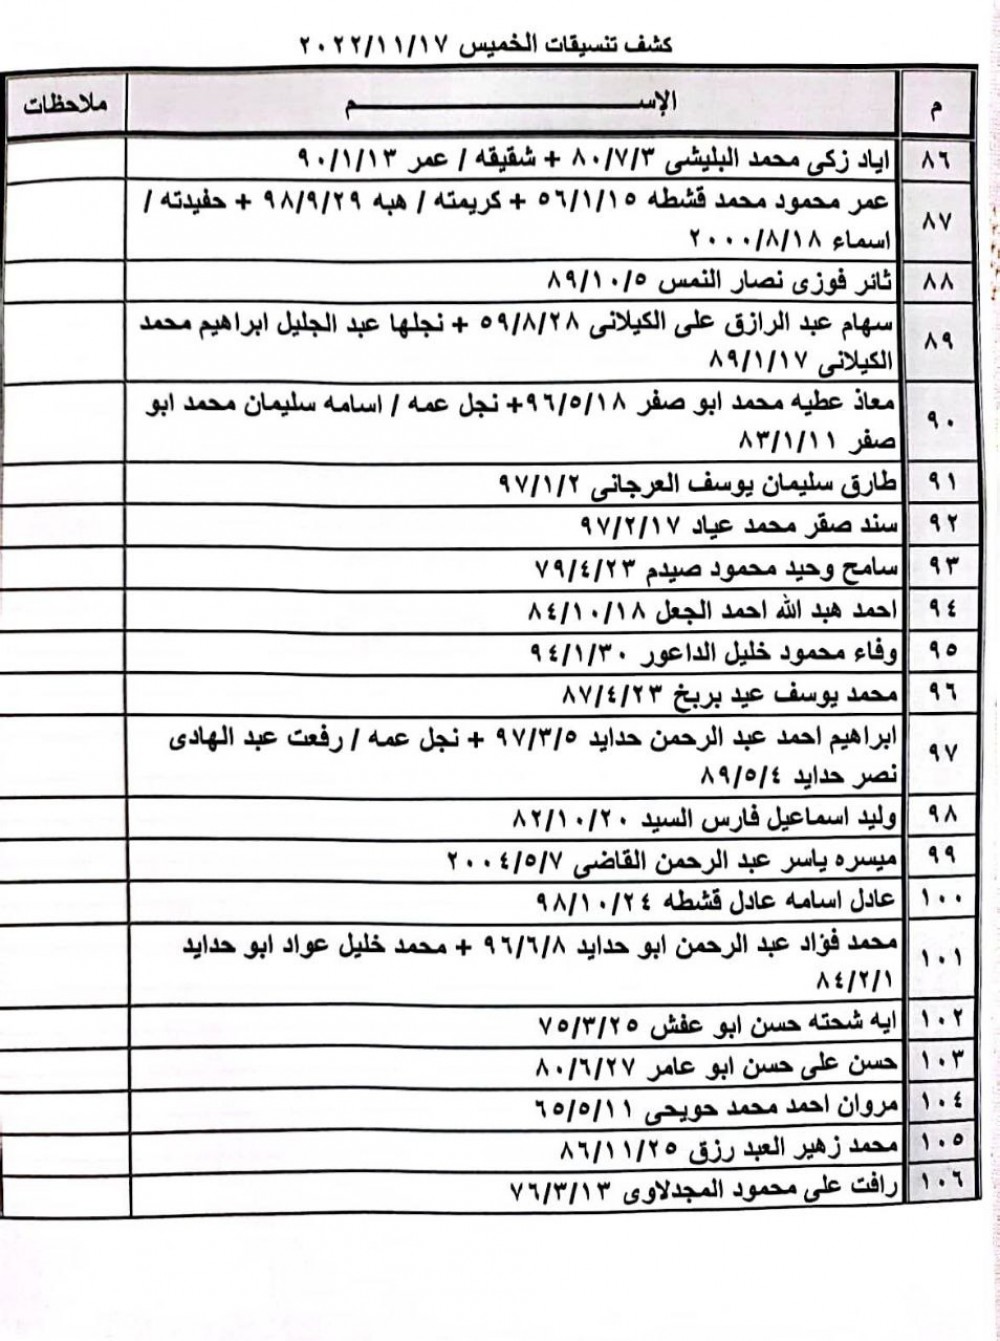 كشف تنسيقات الخميس ٢٠٢٢/١١/١٧
م الإســـــــــــم ملاحظات
٨٦ اياد زكى محمد البليشى ٨٠/٧/٣ + شقيقه / عمر ٩٠/١/١٣
٨٧ عمر محمود محمد قشطه ٥٦/١/١٥ + كريمته / هبه ٩٨/٩/٢٩ + حفيدته /
اسماء ٢٠٠٠/٨/١٨
٨٨ ثائر فوزى نصار النمس ٨٩/١٠/٥
٨٩ سهام عبد الرازق على الكيلانى ٥٩/٨/٢٨ + نجلها عبد الجليل ابراهيم محمد
الكيلانى ٨٩/١/١٧
٩٠ معاذ عطيه محمد ابو صفر ٩٦/٥/١٨+ نجل عمه / اسامه سليمان محمد ابو
صفر ٨٣/١/١١
٩١ طارق سليمان يوسف العرجانى ٩٧/١/٢
٩٢ سند صقر محمد عياد ٩٧/٢/١٧
٩٣ سامح وحيد محمود صيدم ٧٩/٤/٢٣
٩٤ احمد هبد الله احمد الجعل ٨٤/١٠/١٨
٩٥ وفاء محمود خليل الداعور ٩٤/١/٣٠
٩٦ محمد يوسف عيد بريخ ٨٧/٤/٢٣
٩٧ ابراهيم احمد عبد الرحمن حدايد ٩٧/٣/٥ + نجل عمه / رفعت عبد الهادى
نصر حدايد ٨٩/٥/٤
٩٨ وليد اسماعيل فارس السيد ٨٢/١٠/٢٠
٩٩ ميسره ياسر عبد الرحمن القاضى ٢٠٠٤/٥/٧
١٠٠ عادل اسامه عادل قشطه ٩٨/١٠/٢٤
١٠١ محمد فؤاد عبد الرحمن ابو حدايد ٩٦/٦/٨ + محمد خليل عواد ابو حدايد
٨٤/٢/١
١٠٢ ايه شحته حسن ابو عفش ٧٥/٣/٢٥
١٠٣ حسن على حسن ابو عامر ٨٠/٦/٢٧
١٠٤ مروان احمد محمد حويحى ٦٥/٥/١١
١٠٥ محمد زهير العبد رزق ٨٦/١١/٢٥
١٠٦ رافت على محمود المجدلاوى ٧٦/٣/١٣